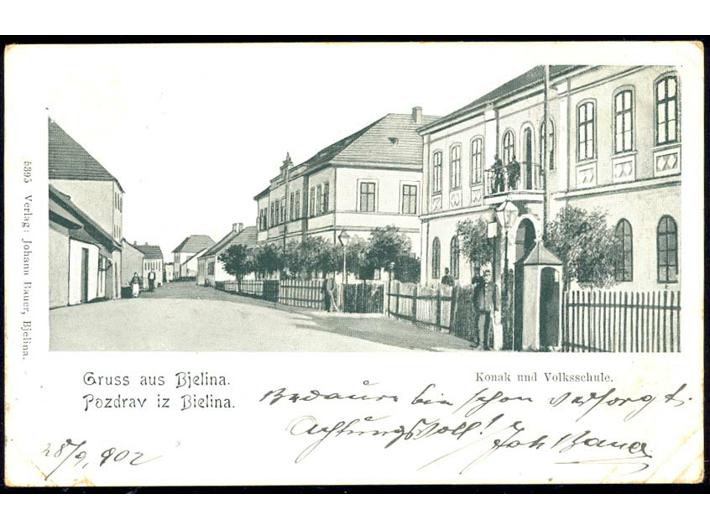 5395 Verlag: Johann Bauer, Bjelina.
Gruss aus Bjelina.
Pozdrav iz Bielina.
Konak und Volksschule.
Bedaure bin schon versorgt.
Achtungsvoll! Joh Bauer
28/9 902